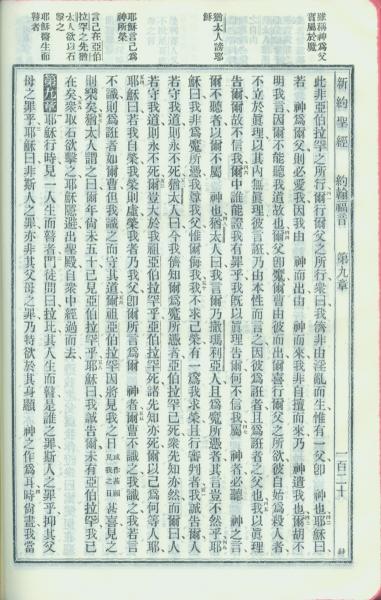 雖稱神爲父
實屬於魔
猶太人謗耶
穌
耶穌言己爲
神所榮
言己在亞伯
拉罕之先猶
太人欲以石
擊之
耶穌醫生而
瞽者
新約聖經 約翰福音 第九章 一百二十
此非亞伯拉罕之所行爾行爾父之所行衆曰我儕非由淫亂而生惟有一父卽 神也耶穌曰
若 神爲爾父則必愛我因我由 神而出由 神而來我非自擅而來乃 神遣我也爾胡不
明我言因爾不能聽我道故也爾父卽魔爾曹由彼而出爾喜行爾父之所欲彼自始爲殺人者
不立於眞理以其內無眞理彼言誑乃由本性而言之因彼爲誑者且爲誑者之父也我以眞理
告爾爾故不信我爾中誰能證我有罪乎我旣以眞理告爾何不信我屬 神者必聽 神之言
爾不聽者以爾不屬 神也猶太人曰我言爾乃撒瑪利亞人且爲魔所憑者其言豈不然乎耶
穌曰我非爲魔所憑我尊我父惟爾侮我我不求己榮有一爲我求榮且行審判者我誠告爾人
若守我道則永不死猶太人曰今我儕知爾爲魔所憑者亞伯拉罕已死衆先知亦然而爾曰人
若守我道則永不死爾豈大於我祖亞伯拉罕乎亞伯拉罕死諸先知亦死爾以己爲何等人耶
耶穌曰若我自榮我榮則虛榮我者乃我父卽爾所言爲爾 神者爾曹不識之我識之我若言
不識則爲誑者如爾曹但我識之而守其道爾祖亞伯拉罕因將見我之日或作甚願見我之日甚喜見之
則樂矣猶太人謂之曰爾年尙未五十已見亞伯拉罕乎耶穌曰我誠告爾未有亞伯拉罕我已
在矣衆取石欲擊之耶穌隱避出聖殿自衆中經過而去
第九章 耶穌行時見一人生而瞽者門徒問曰拉比其人生而瞽是誰之罪斯人之罪乎抑其父
母之罪乎耶穌曰非斯人之罪亦非其父母之罪乃特欲於其身顯 神之作爲耳時尙晝我當